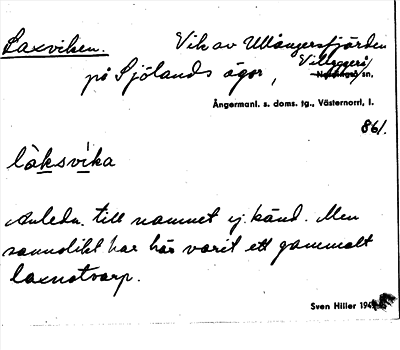 Laxviken. Vik av Ullångersfjärden
på Sjölands ägor, Vibyggerå sn,
Ångermanl. s. doms. tg., Västernorrl, l.
861.
làksvika
Anledn. till namnet ej känd. Men
sannolikt har här varit ett gammalt
laxnotvarp.
Sven Hiller